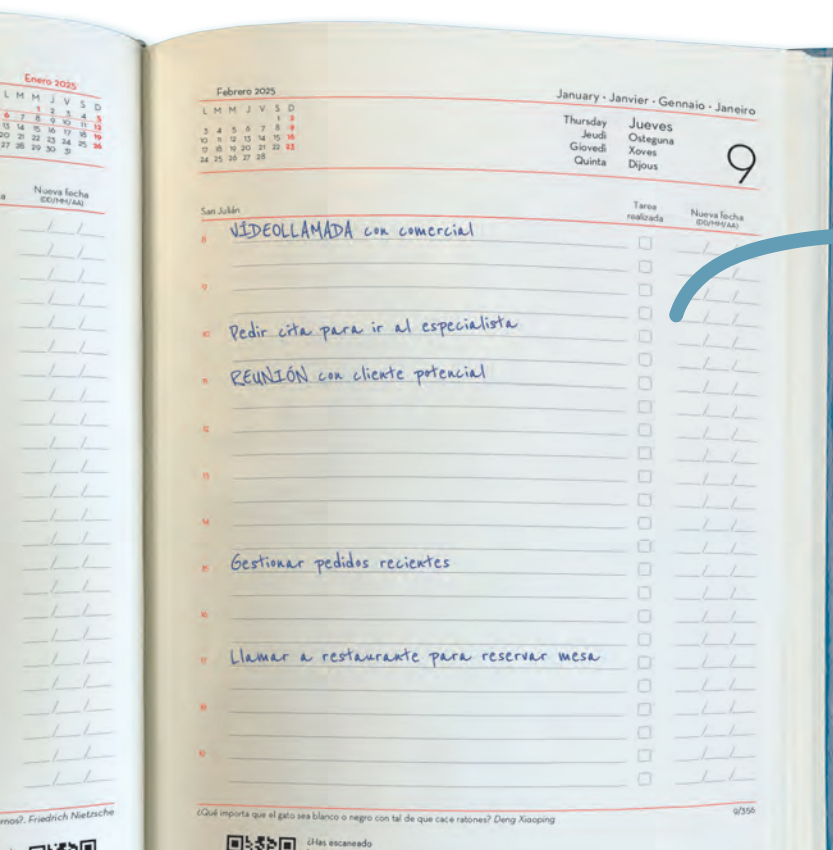 Enero 2025
L M M J V S D
1 2 3 4 5
6 7 8 9 10 11 12
13 14 15 16 17 18 19
20 21 22 23 24 25 26
27 28 29 30 31
Nueva fecha
(DD/MM/AA)
Friedrich Nietzsche
Febrero 2025
L M M J V S D
1 2
3 4 5 6 7 8 9
10 11 12 13 14 15 16
17 18 19 20 21 22 23
24 25 26 27 28
January · Janvier · Gennaio · Janeiro
Thursday Jueves
Jeudi Osteguna
Giovedì Xoves
Quinta Dijous
9
San Julián
Tarea
realizada
Nueva fecha
(DD/MM/AA)
8 VIDEOLLAMADA con comercial
9
10 Pedir cita para ir al especialista
11 REUNIÓN con cliente potencial
12
13
14
15 Gestionar pedidos recientes
16
17 Llamar a restaurante para reservar mesa
18
19
¿Qué importa que el gato sea blanco o negro con tal de que cace ratones? Deng Xiaoping
9/356
¿Has escaneado